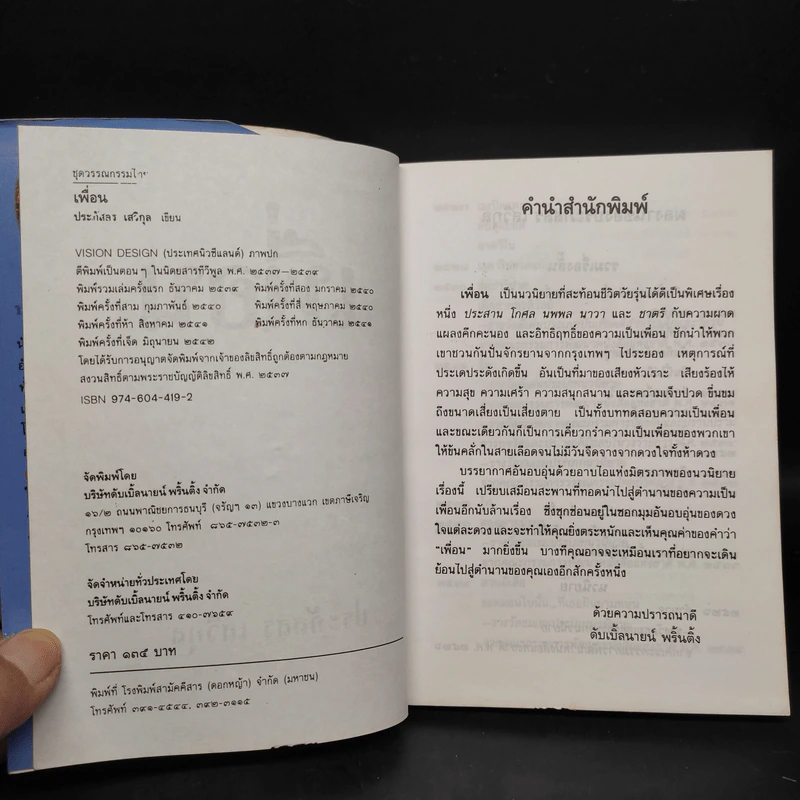 ชุดวรรณกรรมไทย
เพื่อน
ประภัสสร เสวิกุล เขียน
VISION DESIGN (ประเทศนิวซีแลนด์) ภาพปก
ตีพิมพ์เป็นตอนๆ ในนิตยสารทีวีพูล พ.ศ. ๒๕๓๗—๒๕๓๙
พิมพ์รวมเล่มครั้งแรก ธันวาคม ๒๕๓๙ พิมพ์ครั้งที่สอง มกราคม ๒๕๔๐
พิมพ์ครั้งที่สาม กุมภาพันธ์ ๒๕๔๐ พิมพ์ครั้งที่สี่ พฤษภาคม ๒๕๔๐
พิมพ์ครั้งที่ห้า สิงหาคม ๒๕๔๑ พิมพ์ครั้งที่หก ธันวาคม ๒๕๔๑
พิมพ์ครั้งที่เจ็ด มิถุนายน ๒๕๔๒
โดยได้รับการอนุญาตจัดพิมพ์จากเจ้าของลิขสิทธิ์ถูกต้องตามกฎหมาย
สงวนสิทธิ์ตามพระราชบัญญัติลิขสิทธิ์ พ.ศ. ๒๕๓๗
ISBN 974-604-419-2
จัดพิมพ์โดย
บริษัทดับเบิ้ลนายน์ พริ้นติ้ง จำกัด
๑๖/๒ ถนนพาณิชยการธนบุรี (จรัญฯ ๑๓) แขวงบางแวก เขตภาษีเจริญ
กรุงเทพฯ ๑๐๑๖๐ โทรศัพท์ ๘๖๕-๗๕๓๒-๓
โทรสาร ๘๖๕-๗๕๓๒
จัดจำหน่ายทั่วประเทศโดย
บริษัทดับเบิ้ลนายน์ พริ้นติ้ง จำกัด
โทรศัพท์และโทรสาร ๔๑๐-๗๖๕๙
ราคา ๑๓๕ บาท
พิมพ์ที่ โรงพิมพ์สามัคคีสาร (ดอกหญ้า) จำกัด (มหาชน)
โทรศัพท์ ๓๙๑-๔๕๔๔, ๓๙๒-๓๑๑๕
คำนำสำนักพิมพ์
เพื่อน เป็นนวนิยายที่สะท้อนชีวิตวัยรุ่นได้ดีเป็นพิเศษเรื่อง
หนึ่ง ประสาน โกศล นพพล นาวา และ ชาตรี กับความผาด
แผลงคึกคะนอง และอิทธิฤทธิ์ของความเป็นเพื่อน ชักนำให้พวก
เขาชวนกันปั่นจักรยานจากกรุงเทพฯ ไประยอง เหตุการณ์ที่
ประเดประดังเกิดขึ้น อันเป็นที่มาของเสียงหัวเราะ เสียงร้องไห้
ความสุข ความเศร้า ความสนุกสนาน และความเจ็บปวด ขื่นขม
ถึงขนาดเสี่ยงเป็นเสี่ยงตาย เป็นทั้งบททดสอบความเป็นเพื่อน
และขณะเดียวกันก็เป็นการเคี่ยวกรำความเป็นเพื่อนของพวกเขา
ให้ข้นคลั่กในสายเลือดจนไม่มีวันจืดจางจากดวงใจทั้งห้าดวง
บรรยากาศอันอบอุ่นด้วยอาบไอแห่งมิตรภาพของนวนิยาย
เรื่องนี้ เปรียบเสมือนสะพานที่ทอดนำไปสู่ตำนานของความเป็น
เพื่อนอีกนับล้านเรื่อง ซึ่งซุกซ่อนอยู่ในซอกมุมอันอบอุ่นของดวง
ใจแต่ละดวง และจะทำให้คุณยิ่งตระหนักและเห็นคุณค่าของคำว่า
"เพื่อน" มากยิ่งขึ้น บางทีคุณอาจจะเหมือนเราที่อยากจะเดิน
ย้อนไปสู่ตำนานของคุณเองอีกสักครั้งหนึ่ง
ด้วยความปรารถนาดี
ดับเบิ้ลนายน์ พริ้นติ้ง